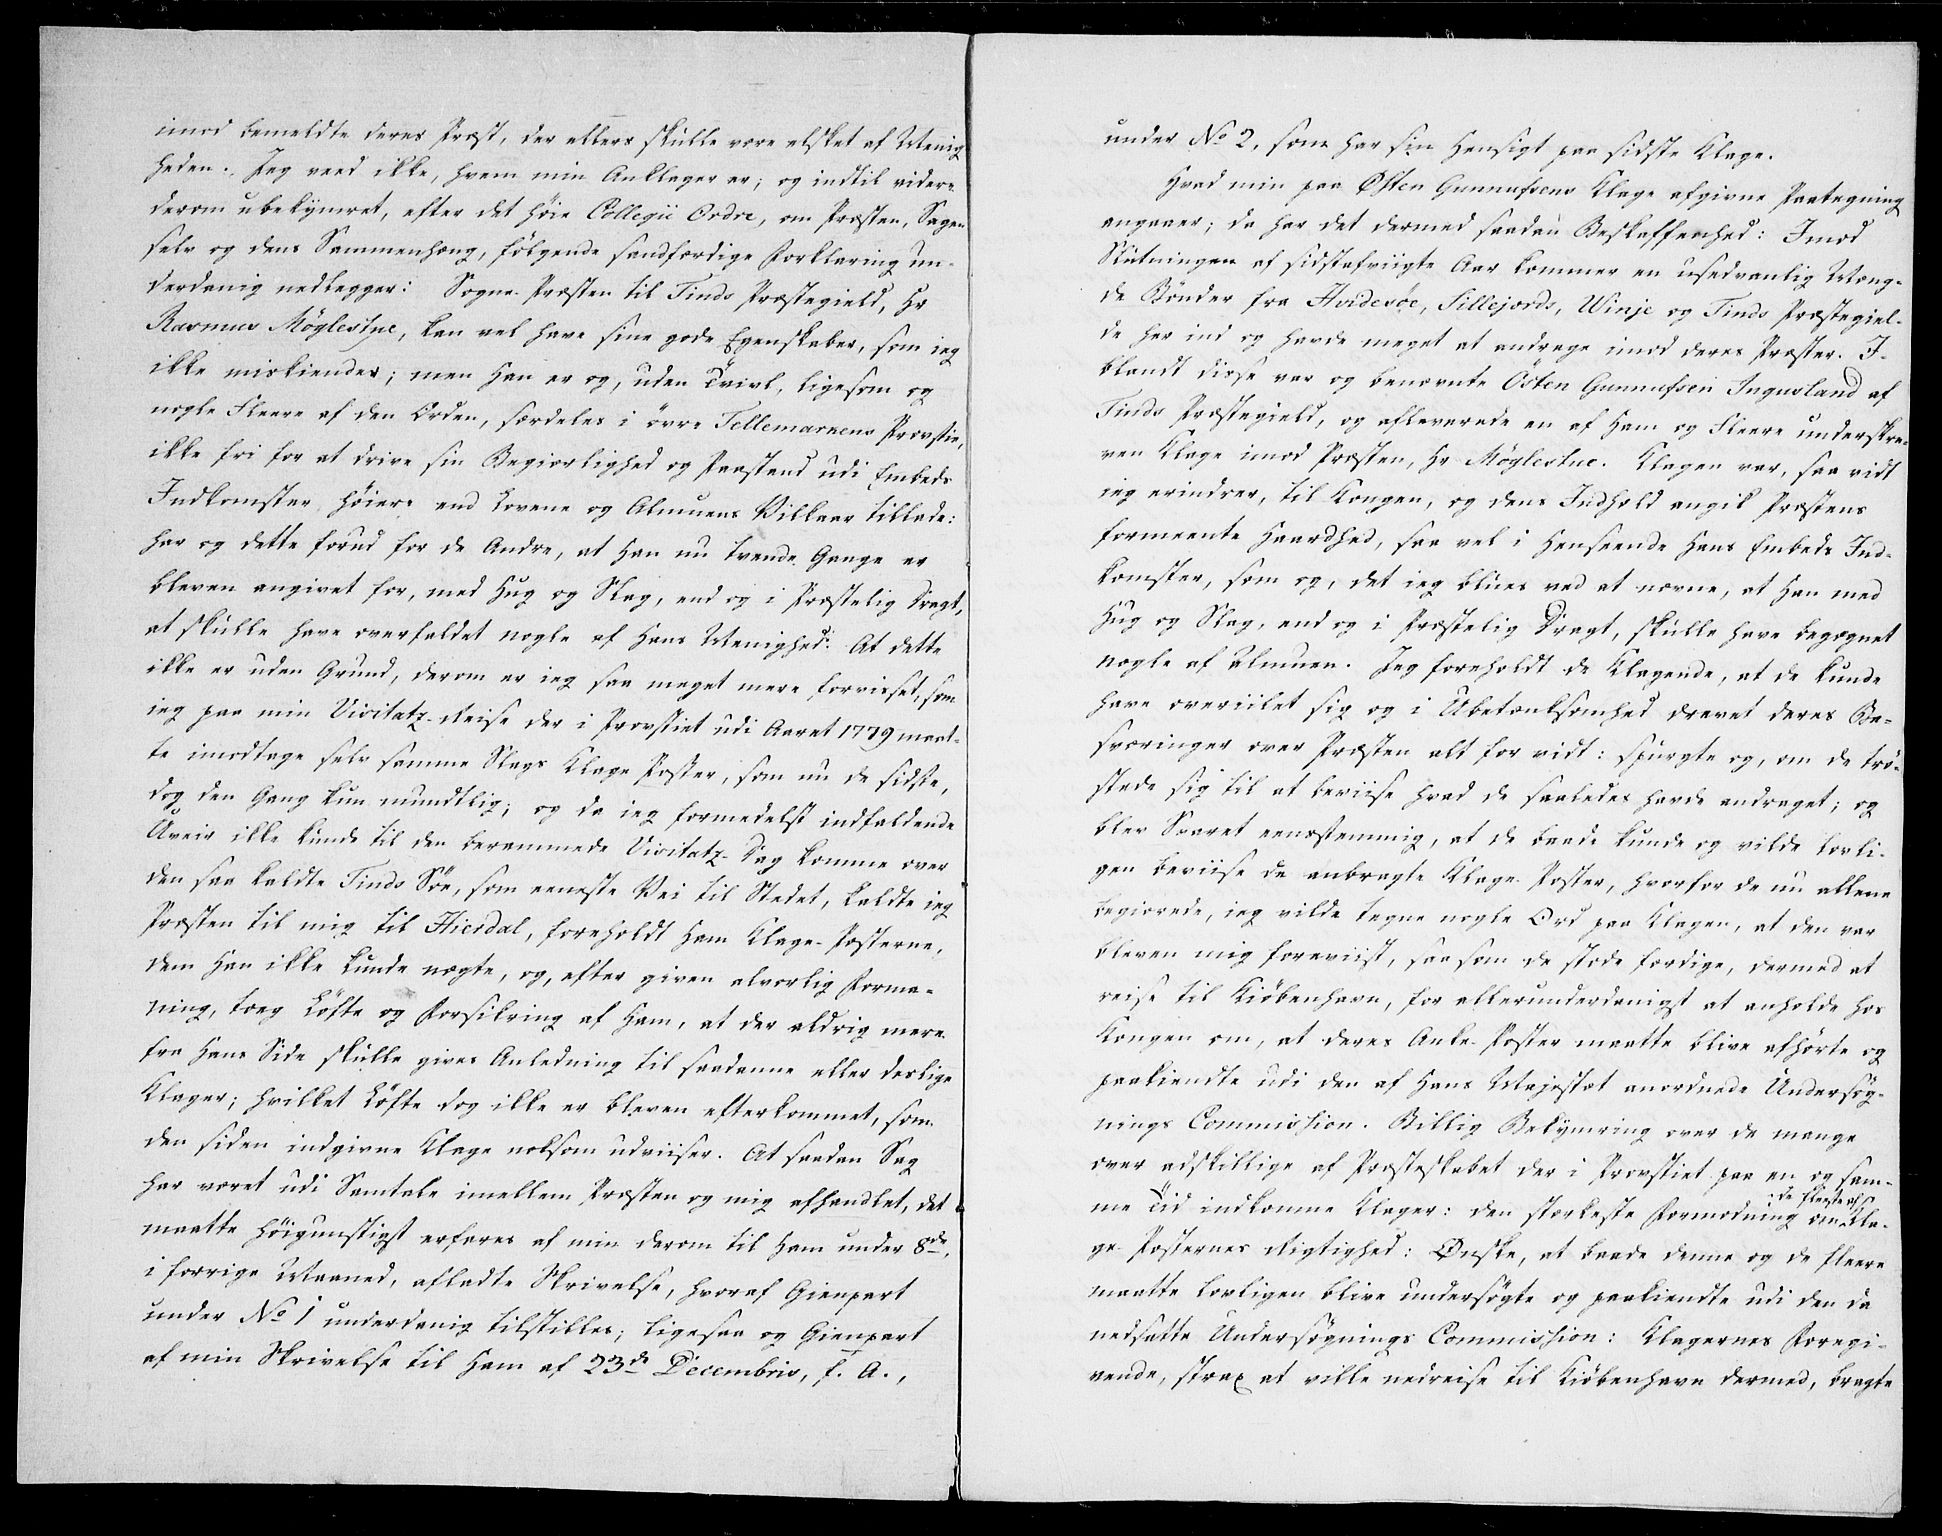 imod bemeldte deres Præst, der ellers skulle være elsket af Menig
heden. Jeg veed ikke, hvem min Anklager er; og indtil videre
derom ubekymret, efter det høie Collegii Ordre, om Præsten, Sagen
selv og dens Sammenhæng, følgende sandfærdige Forklaring un-
derdanig nedlegger: Sogne-Præsten til Tinds Præstegield, Hr
Rasmus Möglestue, kan vel have sine gode Egenskaber, som ieg
ikke miskiender; men Han er og, uden Tvivl, ligesom og
nogle Fleere af den Orden, særdeles i övre Tellemarkens Provstie,
ikke fri for at drive sin Begiærlighed og Paastand udi Embeds
Indkomster høiere end Lovene og Almuens Vilkaar tillade:
har og dette forud for de Andre, at Han nu tvende Gange er
bleven angivet for, med Hug og Slag, end og i Præstelig Dragt,
at skulle have overfaldet nogle af Hans Menighed: At dette
ikke er uden Grund, derom er ieg saa meget mere forvisset, som
ieg paa min Visitatz-Reise der i Provstiet udi Aaret 1779 maat-
te imodtage selv samme Slags Klage Poster, som nu de sidste,
dog den Gang kun mundtlig; og da ieg formedelst indfaldende
Uveir ikke kunde til den berammede Visitatz-Dag komme over
den saa kaldte Tinds Söe, som eeneste Vei til Stedet, kaldte ieg
Præsten til mig til Hierdal, foreholdt Ham Klage-Posterne,
dem Han ikke kunde nægte, og, efter given alvorlig Forma-
ning, toeg Löfte og Forsikring af Ham, at der aldrig mere
fra Hans Side skulle gives Anledning til saadanne eller deslige
Klager; hvilket Löfte dog ikke er bleven efterkommet, som
den siden indgivne Klage noksom udviiser. At saadan Sag
har været udi Samtale imellem Præsten og mig afhandlet, det
maatte höigunstigst erfares af min derom til Ham under 8de,
i forrige Maaned, afladte Skrivelse, hvoraf Gienpart
under No 1 underdanig tilstilles; ligesaa og Gienpart
af min Skrivelse til Ham af 23de Decembris, f. A.,
under No 2, som har sin Hensigt paa sidste Klage.
Hvad min paa Østen Gunnufsens Klage afgivne Paategning
angaaer; da har det dermed saadan Beskaffenhed: Imod
Slutningen af sidstafviigte Aar kommer en usædvanlig Mæng-
de Bönder fra Hvidesöe, Sillejords, Winje og Tinds Præstegiel-
de her ind og havde meget at andrage imod deres Præster. I-
blandt disse var og benævnte Östen Gunnufsen Ingusland af
Tinds Præstegield, og afleverede en af Ham og Fleere underskre-
ven Klage imod Præsten, Hr Möglestue. Klagen var, saa vidt
ieg erindrer, til Kongen, og dens Indhold angik Præstens
formeente Haardhed, saa vel i Henseende Hans Embeds Ind-
komster, som og, det ieg blues ved at nævne, at Han med
Hug og Slag, end og i Præstelig Dragt, skulle have begegnet
nogle af Almuen. Jeg foreholdt de Klagende, at de kunde
have overiilet sig og i Ubetænksomhed drevet deres Be-
sværinger over Præsten alt for vidt: spurgte og, om de trö-
stede sig til at beviise hvad de saaledes havde andraget; og
blev Svaret eenstemmig, at de baade kunde og vilde lovli-
gen beviise de anbragte Klage-Poster, hvorfor de nu allene
begiærede, ieg vilde tegne nogle Ord paa Klagen, at den var
bleven mig foreviist, saasom de stode færdige, dermed at
reise til Kiöbenhavn, for allerunderdanigst at anholde hos
Kongen om, at deres Anke-Poster maatte blive afhörte og
paakiendte udi den af Hans Majestæt anordnede Undersög-
nings Commission. Billig Bekymring over de mange
over adskillige af Præsteskabet der i Provstiet paa en og sam-
me Tid indkomne Klager: den stærkeste Formodning om de fleeste af Kla-
ge-Posternes Rigtighed: Ønske, at baade denne og de fleere
maatte lovligen blive undersögte og paakiendte udi den da
nedsatte Undersögnings Commission: Klagernes Foregi-
vende, strax at ville nedreise til Kiöbenhavn dermed, bragte